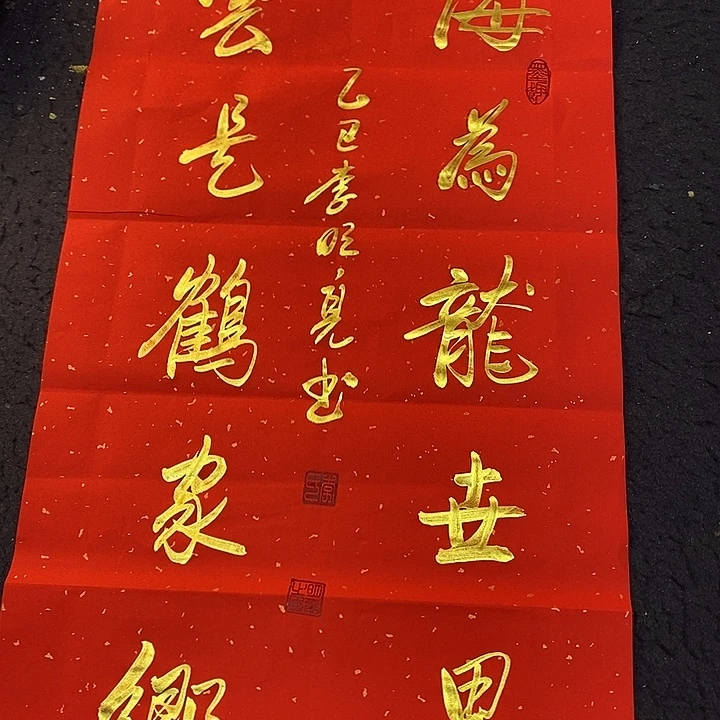 海為龍世界
雲是鶴家鄉
乙巳李明亮书
墨海